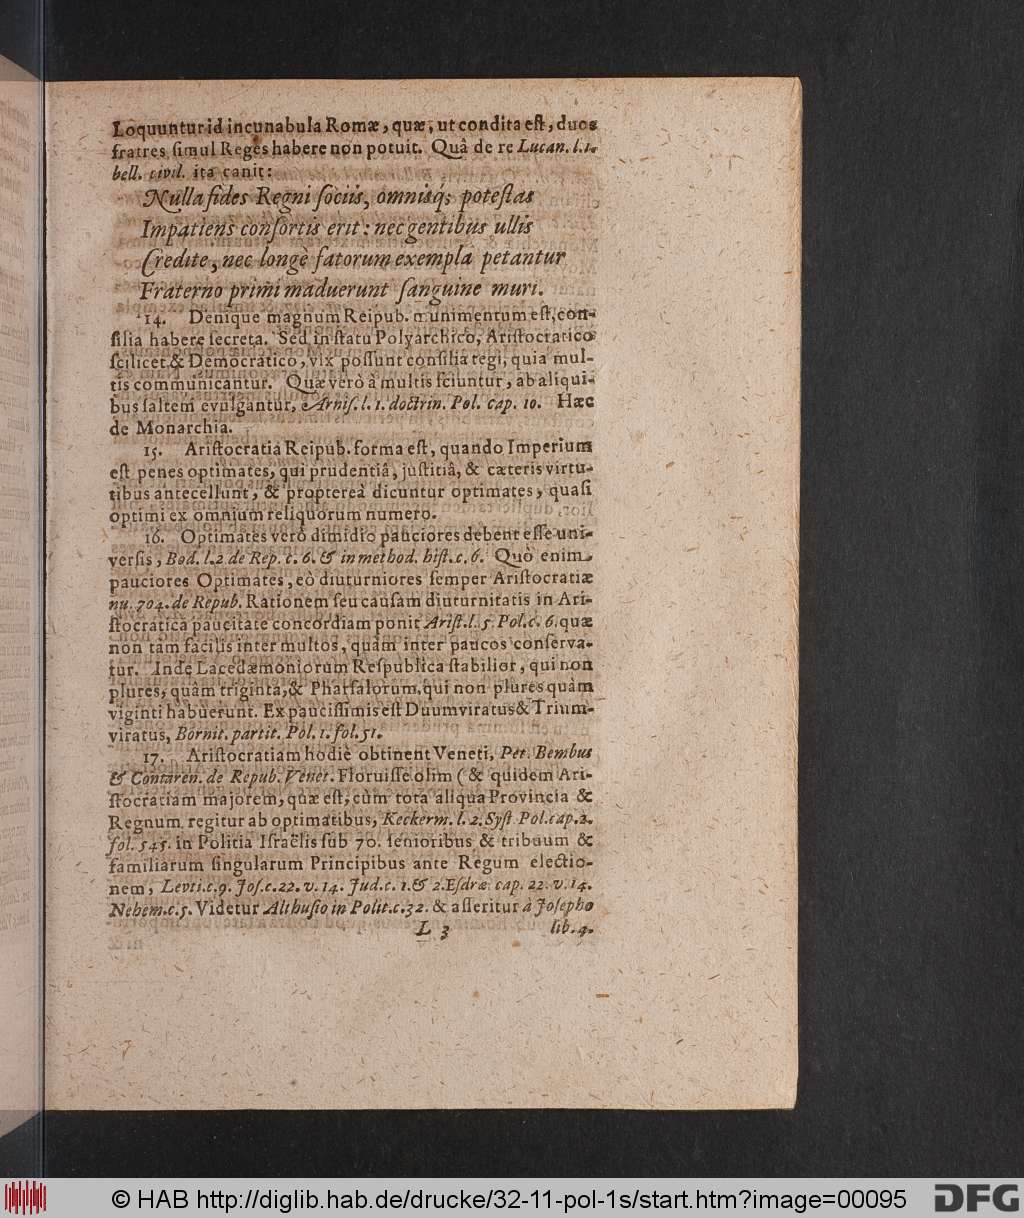 Loquuntur id incunabula Romæ, quæ, ut condita eſt, duos
fratres ſimul Reges habere non potuit. Quâ de re Lucan. l. 1.
bell. civil. ita canit:
Nulla fides Regni ſociis, omnisq́; poteſtas
Impatiens conſortis erit: nec gentibus ullis
Credite, nec longè fatorum exempla petantur
Fraterno primi maduerunt ſanguine muri.
14. Denique magnum Reipub. munimentum eſt, con-
ſilia habere ſecreta. Sed in ſtatu Polyarchico, Ariſtocratico
ſcilicet & Democratico, vix poſſunt conſilia tegi, quia mul-
tis communicantur. Quæ verò à multis ſciuntur, ab aliqui-
bus ſaltem evulgantur, Arniſ. l. 1. doctrin. Pol. cap. 10. Hæc
de Monarchia.
15. Ariſtocratia Reipub. forma eſt, quando Imperium
eſt penes optimates, qui prudentiâ, juſtitiâ, & cæteris virtu-
tibus antecellunt, & propterea dicuntur optimates, quaſi
optimi ex omnium reliquorum numero.
16. Optimates verò dimidio pauciores debent eſſe uni-
verſis, Bod. l. 2 de Rep. c. 6. & in method. hiſt. c. 6. Quò enim
pauciores Optimates, eò diuturniores ſemper Ariſtocratiæ
nu. 704. de Repub. Rationem ſeu cauſam diuturnitatis in Ari-
ſtocratica paucitate concordiam ponit Ariſt. l. 5. Pol. c. 6. quæ
non tam facilis inter multos, quàm inter paucos conſerva-
tur. Inde Lacedæmoniorum Reſpublica ſtabilior, qui non
plures, quâm triginta, & Pharſalorum, qui non plures quàm
viginti habuerunt. Ex pauciſſimis eſt Duumviratus & Trium-
viratus, Bornit. partit. Pol. 1. fol. 51.
17. Ariſtocratiam hodiè obtinent Veneti, Pet. Bembus
& Contaren. de Repub. Venet. Floruiſſe olim (& quidem Ari-
ſtocratiam majorem, quæ eſt, cùm tota aliqua Provincia &
Regnum regitur ab optimatibus, Keckerm. l. 2. Syſt Pol. cap. 2.
fol. 545. in Politia Iſraëlis ſub 70. ſenioribus & tribuum &
familiarum ſingularum Principibus ante Regum electio-
nem, Levti. c. 9. Joſ. c. 22. v. 14. Jud. c. 1. & 2. Eſdræ cap. 22. v. 14.
Nehem. c. 5. Videtur Althuſio in Polit. c. 32. & aſſeritur à Joſepho
L 3 lib. 4.
© HAB http://diglib.hab.de/drucke/32-11-pol-1s/start.htm?image=00095
DFG